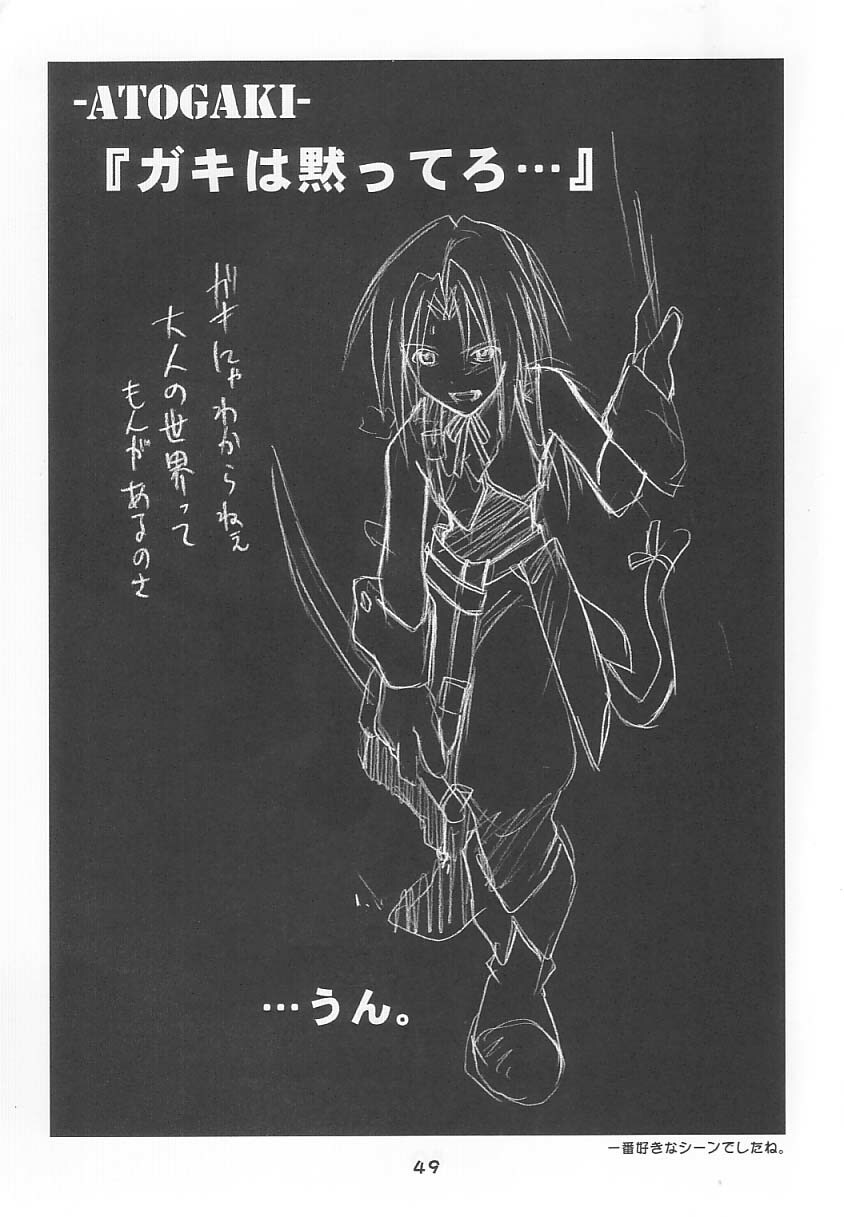 -ATOGAKI-
『ガキは黙ってろ…』
ガキにゃわからねぇ
大人の世界って
もんがあるのさ
…うん。
一番好きなシーンでしたね。
49